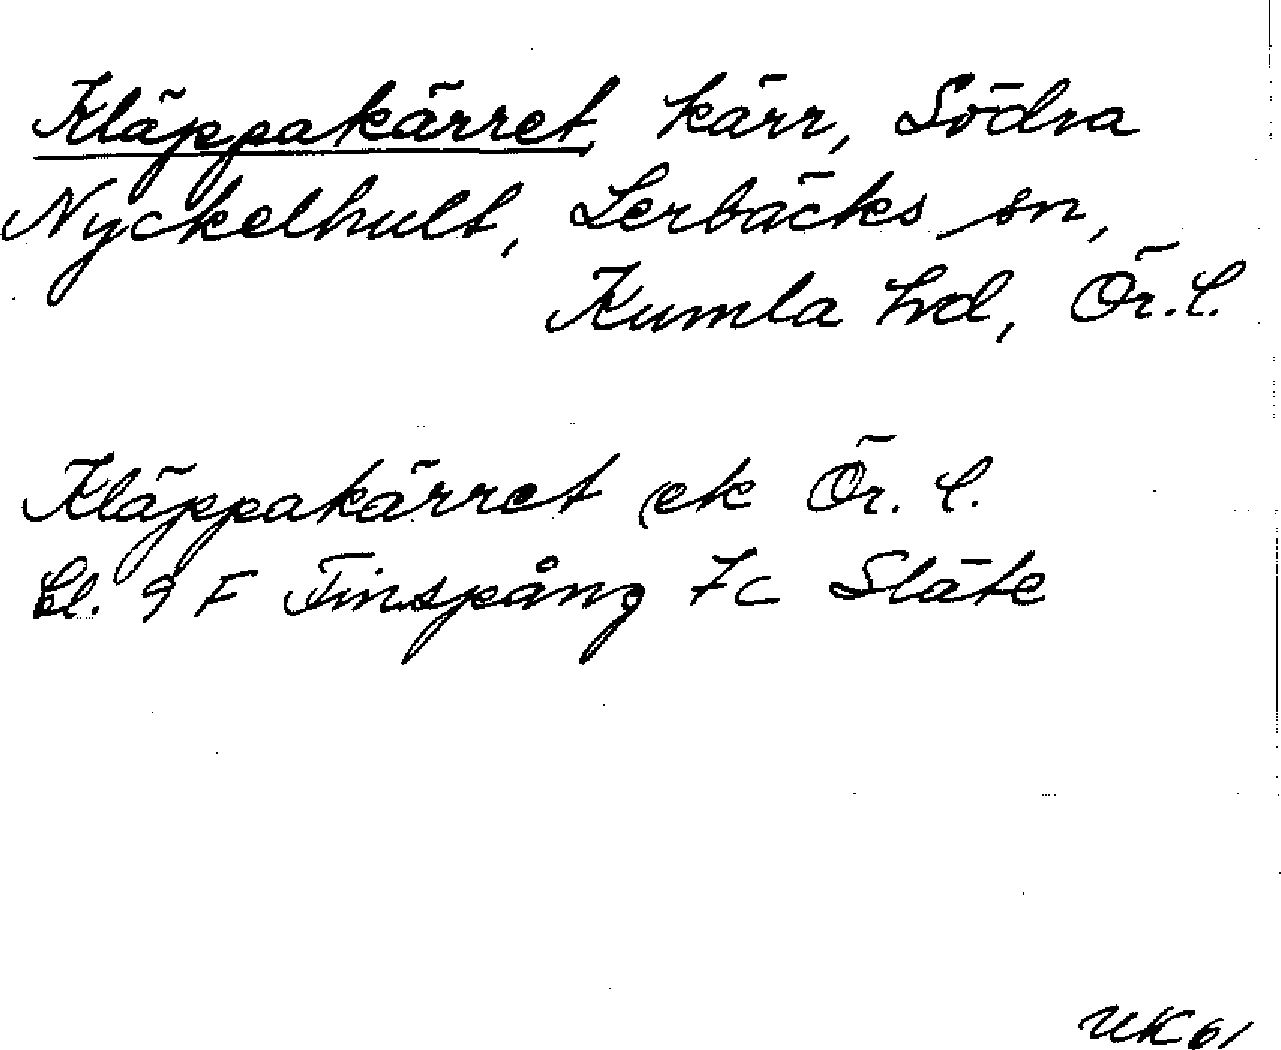 Kläppakärret, kärr, Södra
Nyckelhult, Lerbäcks sn,
Kumla hd, Ör. l.
Kläppakärret ek Ör. l.
Bl. 9 F Finspång 7c Släte
UK 61